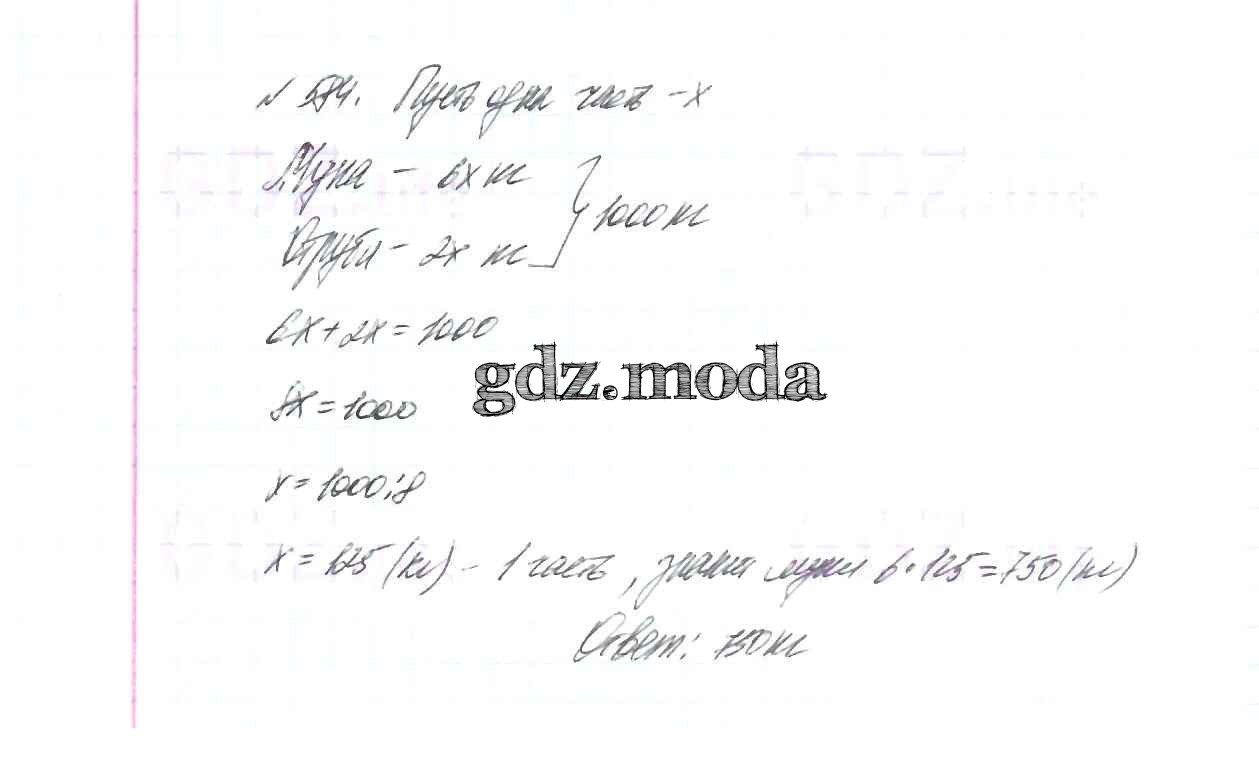 № 584. Пусть одна часть - x
Мука - 6x кг
Отруби - 2x кг
} 1000 кг
6x + 2x = 1000
gdz.moda
8x = 1000
x = 1000 : 8
x = 125 (кг) - 1 часть, значит муки 6 • 125 = 750 (кг)
Ответ: 750 кг